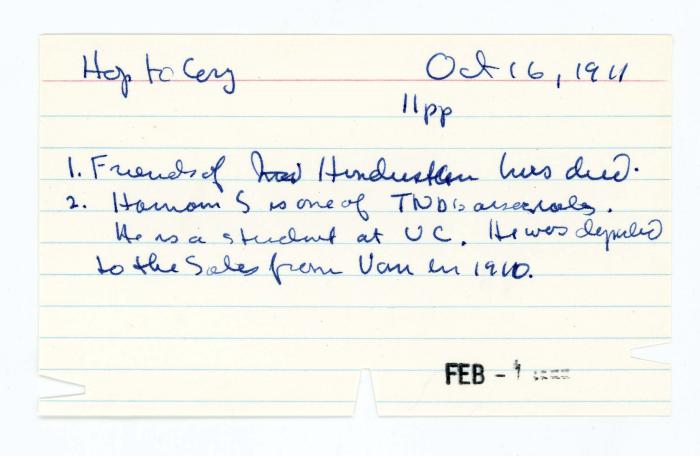 Hop to Cory Oct 16, 1911
11pp
1. Friends of Hindustan has died.
2. Harnam S is one of TND's associates.
He is a student at UC. He was deported
to the States from Van in 1910.
FEB - 1